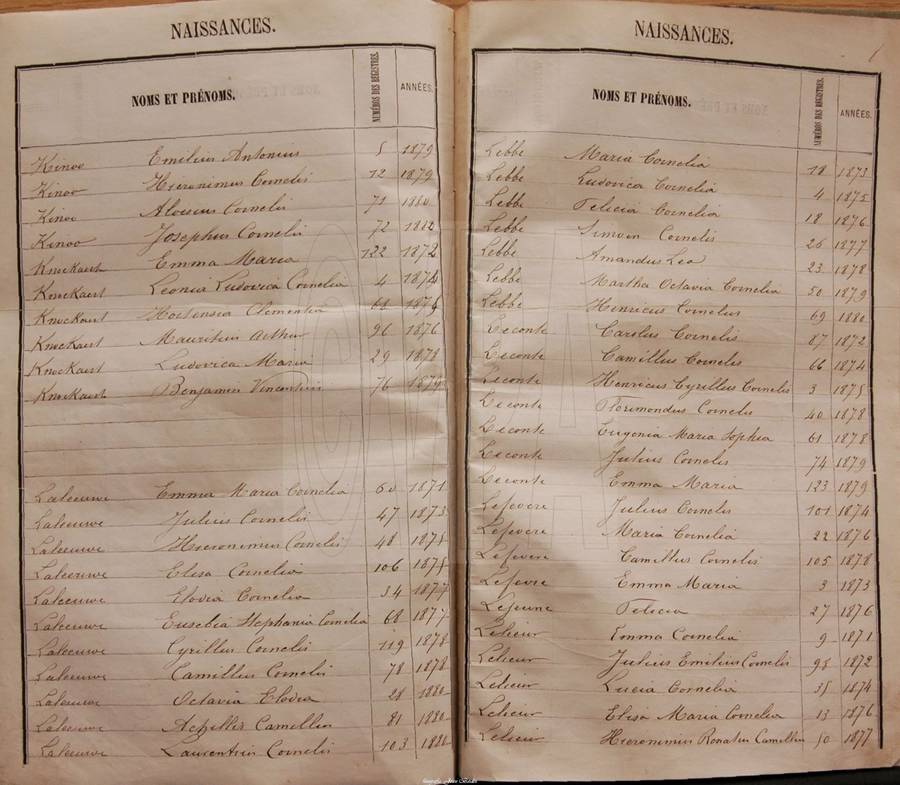 NAISSANCES.
NOMS ET PRÉNOMS. NUMÉROS DES REGISTRES. ANNÉES.
Kinoo Emilius Antonius 5 1879
Kinoo Hieronimus Cornelis 12 1879
Kinoo Aloisius Cornelis 71 1880
Kinoo Josephus Cornelis 72 1882
Knockaert Emma Maria 122 1872
Knockaert Leonia Ludovica Cornelia 4 1874
Knockaert Hortensia Clementia 68 1876
Knockaert Mauritius Arthur 96 1876
Knockaert Ludovica Maria 29 1878
Knockaert Benjamin Vincentius 76 1879
Laleeuwe Emma Maria Cornelia 60 1871
Laleeuwe Julius Cornelis 47 1873
Laleeuwe Hieronimus Cornelis 48 1875
Laleeuwe Elisa Cornelia 106 1875
Laleeuwe Elodia Cornelia 34 1877
Laleeuwe Eusebia Stephania Cornelia 68 1877
Laleeuwe Cyrillus Cornelis 119 1878
Laleeuwe Camillus Cornelis 78 1878
Laleeuwe Octavia Elodia 28 1880
Laleeuwe Achilles Camillus 81 1880
Laleeuwe Laurentius Cornelis 103 1880
NAISSANCES.
1
NOMS ET PRÉNOMS. NUMÉROS DES REGISTRES. ANNÉES.
Lebbe Maria Cornelia 18 1873
Lebbe Ludovica Cornelia 4 1875
Lebbe Felicia Cornelia 18 1876
Lebbe Simoen Cornelis 26 1877
Lebbe Amandus Leo 23 1878
Lebbe Martha Octavia Cornelia 50 1879
Lebbe Henricus Cornelius 69 1880
Leconte Carolus Cornelis 87 1872
Leconte Camillus Cornelis 66 1874
Leconte Henricus Cyrillus Cornelis 3 1875
Leconte Florimondus Cornelis 40 1878
Leconte Eugenia Maria Sophia 61 1878
Leconte Julius Cornelis 74 1879
Leconte Emma Maria 123 1879
Lefevere Julius Cornelis 101 1874
Lefevere Maria Cornelia 22 1876
Lefevere Camillus Cornelis 105 1878
Lefevre Emma Maria 3 1873
Lejeune Felicia 27 1876
Lelieur Emma Cornelia 9 1871
Lelieur Julius Emilius Cornelis 98 1872
Lelieur Lucia Cornelia 35 1874
Lelieur Elisa Maria Cornelia 13 1876
Lelieur Hieronimus Renatus Camillus 50 1877